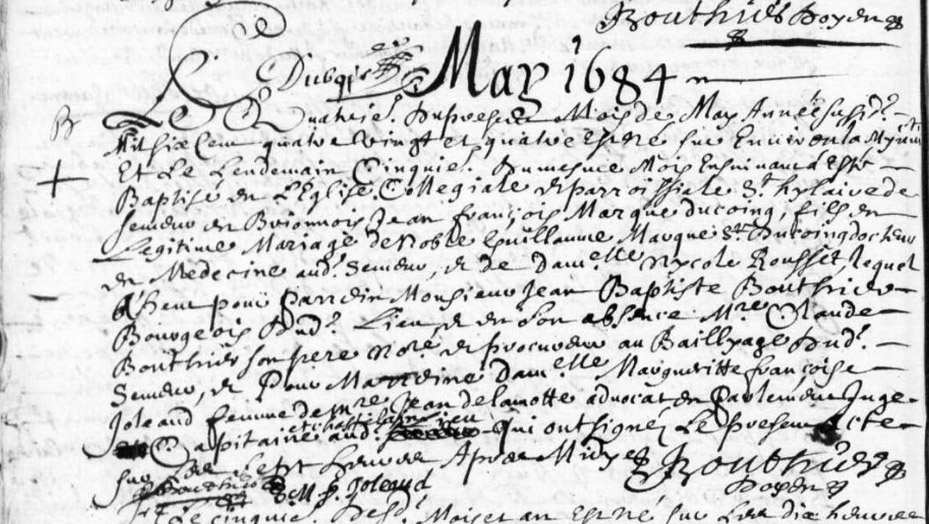 Bouthier Doyen
Du bgs
May 1684
B
Le Quatrie. Du present Mois de May Année susd.
Mil six Cent quatre vingt et quatre est né sur Environ la Mynuit
Et Le Lendemain Cinquie. Du mesme Mois Ensuivant a esté
Baptisé en L'Eglise Collegiale et parroissiale St hylaire de
Semeur en Brionnois Jean François Marque ducoing, fils en
Legitime Mariage de Noble Guillaume Marque Sr Ducoing docteur
en Medecine aud. Semeur, et de Damelle Nycole Rousset, lequel
a heu pour Parrein Monsieur Jean Baptiste Bouthier
Bourgeois dud. Lieu, et en son absence Mre Claude
Bouthier son pere Nore. et procureur au Baillyage dud.
Semeur, et Pour Marreine Damelle Margueritte françoise
Joleaud femme de Mre Jean delamotte advocat en Parlement Juge
et chastelain
Capitaine aud. lieu qui ont signé Le present Acte
sur Les sept heures Apres Midy
Bouthier
Doyen
Bouthier M. f. Joleaud
Le cinquie. desd. Mois et an est né sur Les dix heures